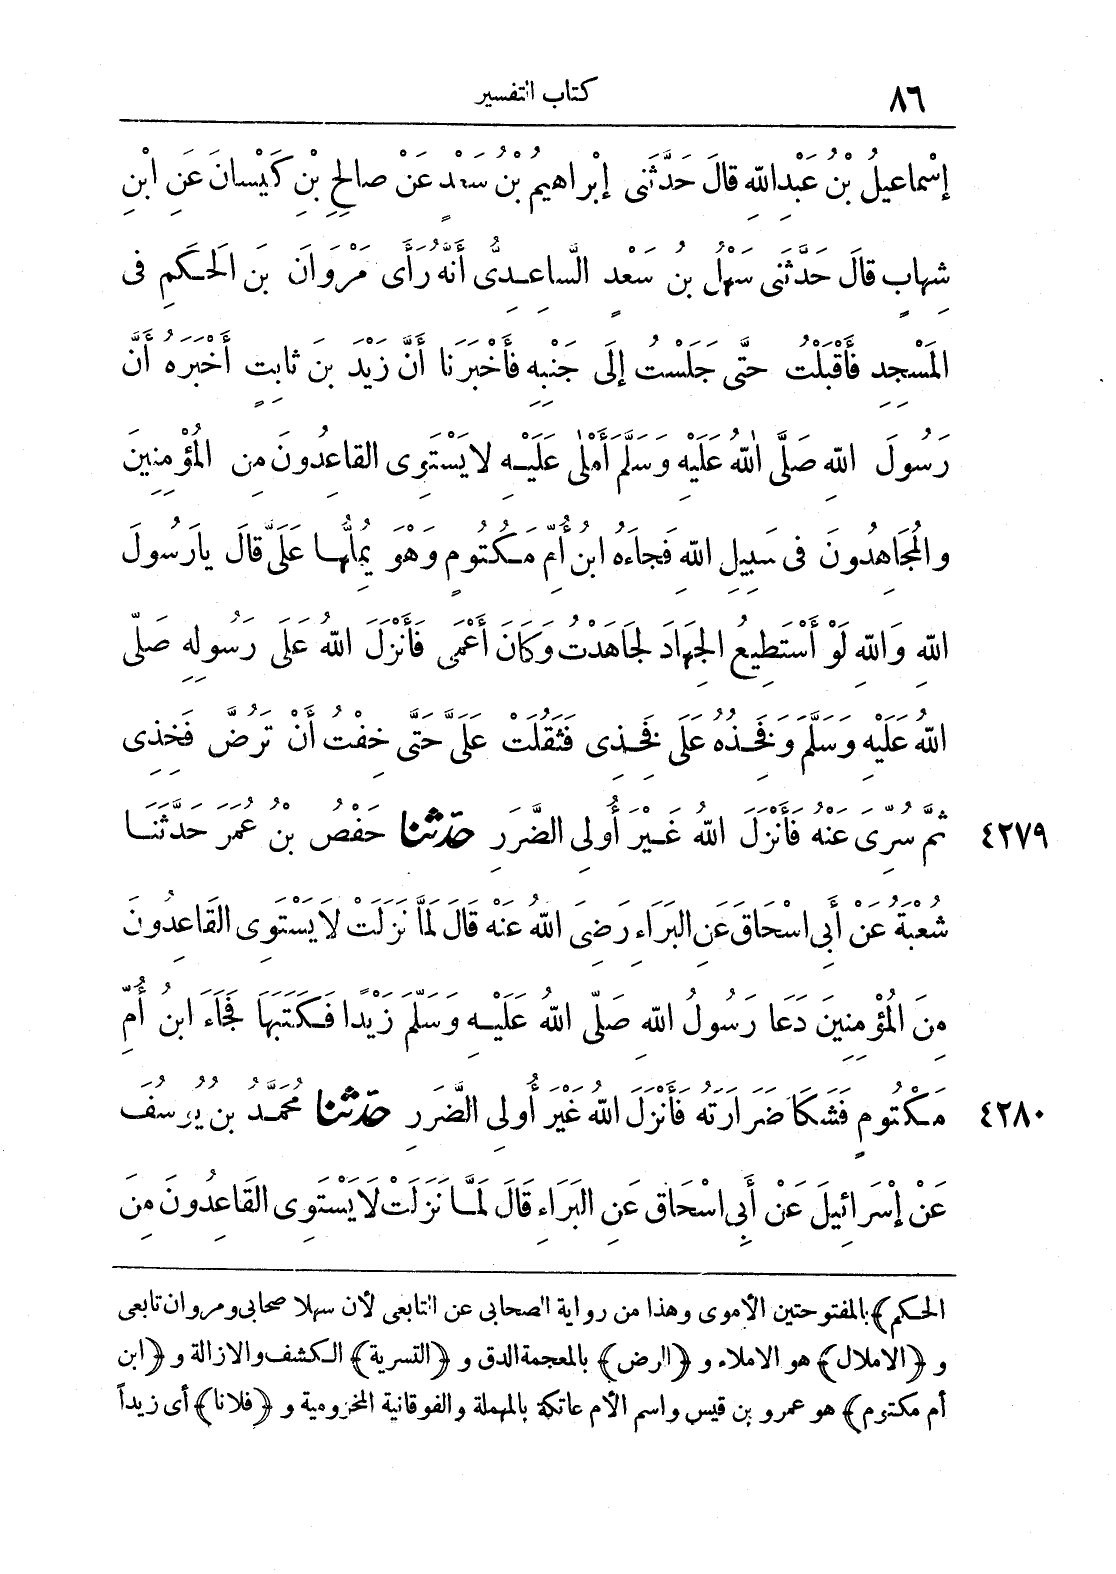 ٨٦ كتاب التفسير
إِسْمَاعِيلُ بْنُ عَبْدِاللهِ قَالَ حَدَّثَنِى إِبْرَاهِيمُ بْنُ سَعْدٍ عَنْ صَالِحِ بْنِ كَيْسَانَ عَنِ ابْنِ
شِهابٍ قَالَ حَدَّثَنِى سَهْلُ بنُ سَعْدٍ السَّاعِدِىُّ أَنَّهُ رَأَى مَرْوَانَ بنَ الحَكَمِ فى
المَسْجِدِ فَأَقْبَلْتُ حَتَّى جَلَسْتُ إِلَى جَنْبِهِ فَأَخْبَرَنَا أَنَّ زَيْدَ بنَ ثابِتٍ أَخْبَرَهُ أَنَّ
رَسُولَ اللهِ صَلَّى اللهُ عَلَيْهِ وَسَلَّمَ أَمْلَى عَلَيْهِ لا يَسْتَوِى القاعِدُونَ مِن المُؤْمِنِينَ
والمُجَاهِدُونَ فى سَبِيلِ اللهِ فَجاءَهُ ابنُ أُمِّ مَكْتُومٍ وَهْوَ يُمِلُّها عَلَىَّ قالَ يارَسُولَ
اللهِ وَاللهِ لَوْ أَسْتَطِيعُ الجِهَادَ لَجَاهَدْتُ وَكَانَ أَعْمَى فَأَنْزَلَ اللهُ عَلَى رَسُولِهِ صَلَّى
اللهُ عَلَيْهِ وَسَلَّمَ وَفَخِذُهُ عَلَى فَخِذِى فَثَقُلَتْ عَلَىَّ حَتَّى خِفْتُ أَنْ تَرُضَّ فَخِذِى
٤٢٧٩ ثُمَّ سُرِّىَ عَنْهُ فَأَنْزَلَ اللهُ غَيْرَ أُولِى الضَّرَرِ حدّثنا حَفْصُ بْنُ عُمَرَ حَدَّثَنَا
شُعْبَةُ عَنْ أَبِى اسْحَاقَ عَنِ البَرَاءِ رَضِىَ اللهُ عَنْهُ قَالَ لَمَّا نَزَلَتْ لَا يَسْتَوِى القَاعِدُونَ
مِنَ المُؤْمِنِينَ دَعَا رَسُولُ اللهِ صَلَّى اللهُ عَلَيْهِ وَسَلَّمَ زَيْدًا فَكَتَبَهَا فَجَاءَ ابنُ أُمِّ
٤٢٨٠ مَكْتُومٍ فَشَكَا ضَرَارَتَهُ فَأَنْزَلَ اللهُ غَيْرَ أُولِى الضَّرَرِ حدّثنا مُحَمَّدُ بنُ يُوسُفَ
عَنْ إِسْرَائِيلَ عَنْ أَبِى اسْحَاقَ عَنِ البَرَاءِ قَالَ لَمَّا نَزَلَتْ لَا يَسْتَوِى القَاعِدُونَ مِنَ
الحكم﴾ بالمفتوحتين الأموى وهذا من رواية الصحابى عن التابعى لأن سهلا صحابى ومروان تابعى
و ﴿الاملال﴾ هو الاملاء و ﴿الرض﴾ بالمعجمة الدق و ﴿التسرية﴾ الكشف والازالة و ﴿ابن
أم مكتوم﴾ هو عمرو بن قيس واسم الأم عاتكة بالمهملة والفوقانية المخزومية و ﴿فلانا﴾ أى زيداً